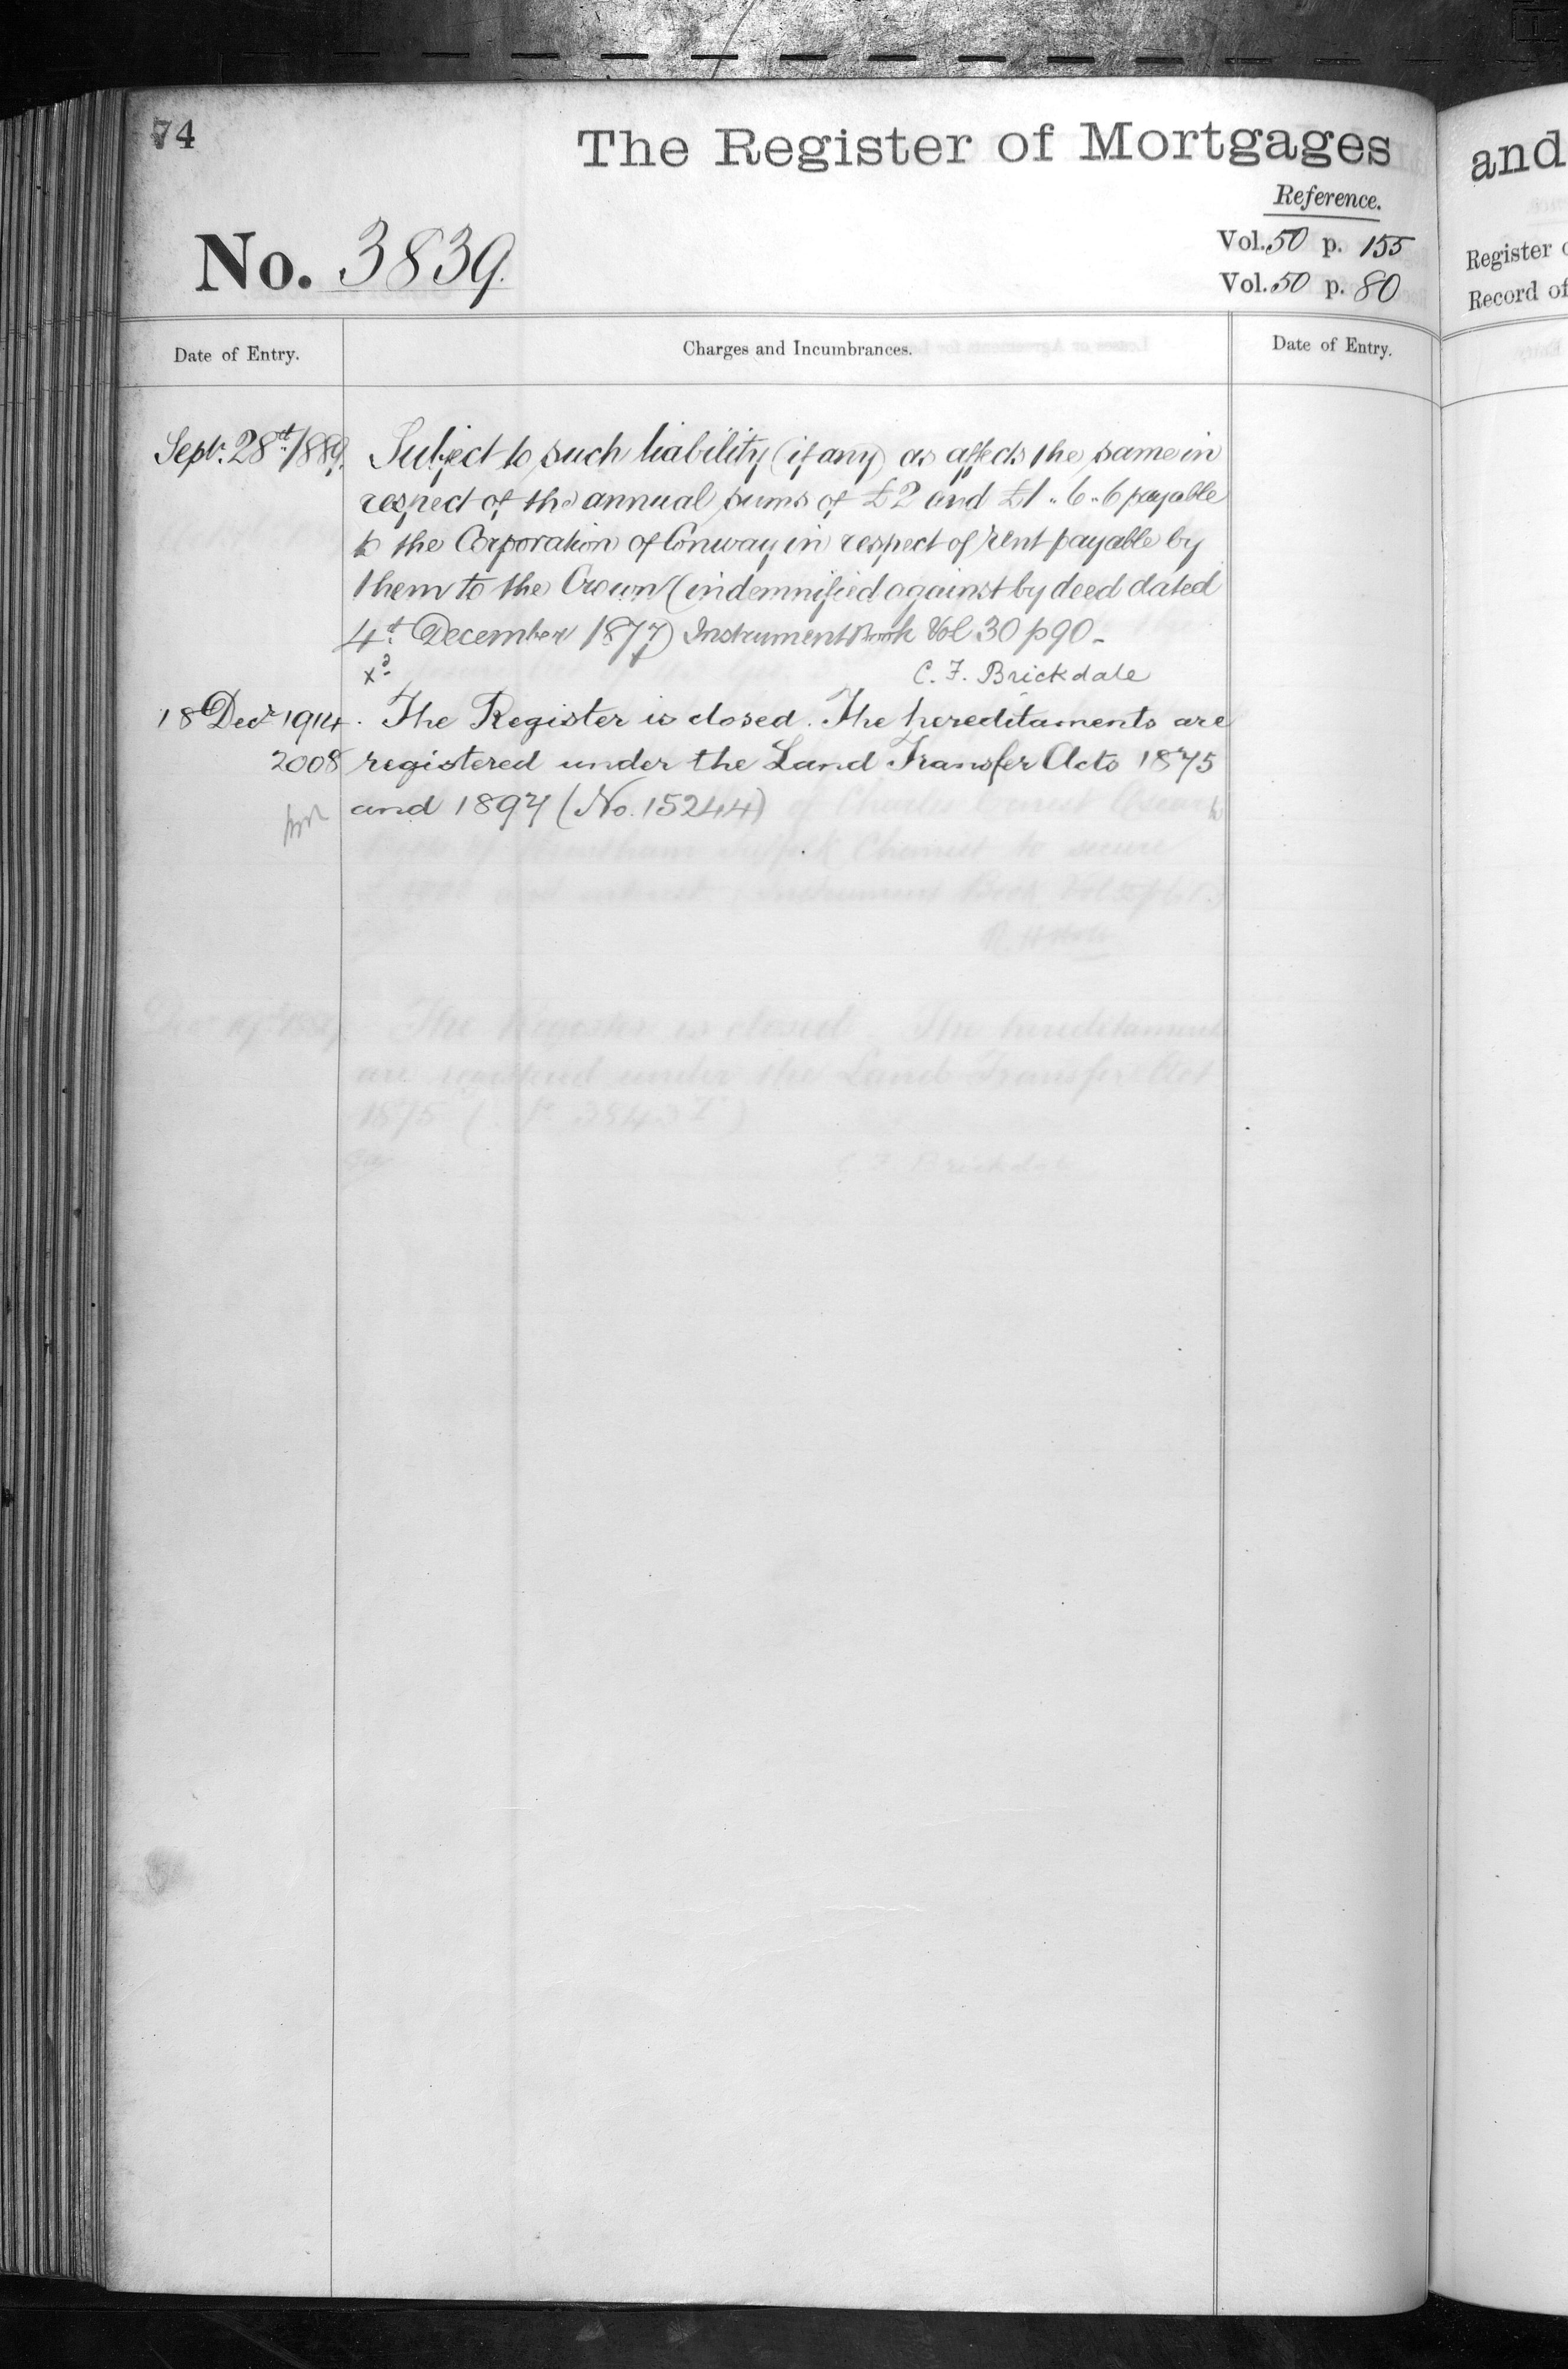 74
The Register of Mortgages
and
Reference.
Vol. 50 p. 155
Vol. 50 p. 80
Register
Record of
No. 3839.
Date of Entry.
Charges and Incumbrances.
Date of Entry.
Sept. 28th 1889. Subject to such liability (if any) as affects the same in
respect of the annual sums of £2 and £1.. 6.. 6 payable
to the Corporation of Conway in respect of rent payable by
them to the Crown (indemnified against by deed dated
4th December 1877) Instrument Book Vol 30 p 90 -
C. F. Brickdale
18 Decr 1914. The Register is closed. The hereditaments are
2008 registered under the Land Transfer Acts 1875
and 1897 (No. 15244)
The Register is closed The hereditaments
are registered under the Land Transfer Act
1875
C F Brickdale